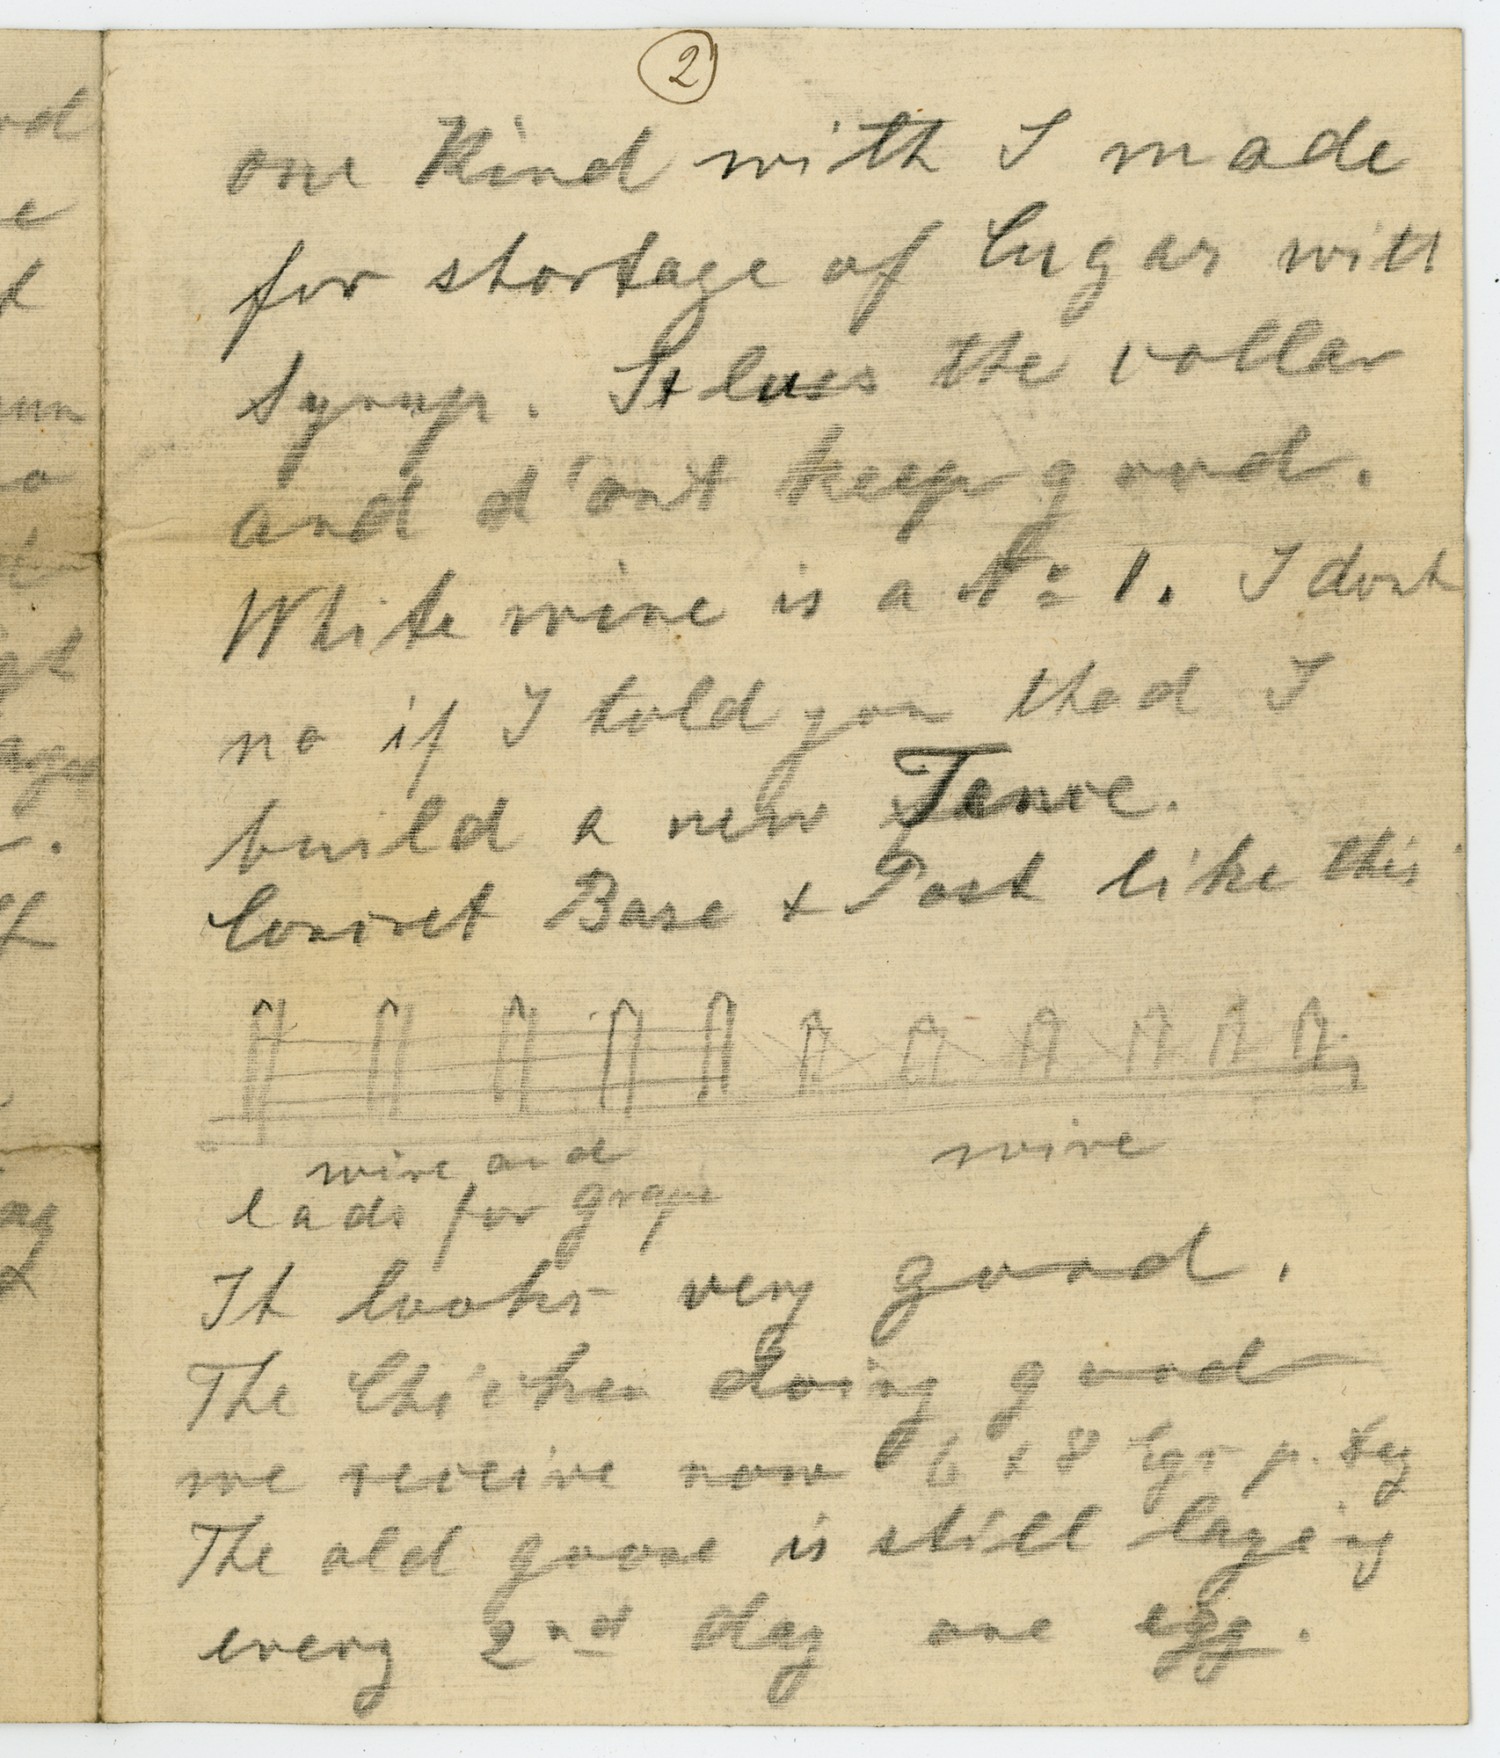 2
one Kind with I made
for shortage of Sugar with
Syrup. It lues the collar
and d'ont keep good.
White wine is a No 1. I dont
no if I told you thad I
build a new Fence.
Concret Base + Post like this
wire and
wire
lads for grape
It looks very good.
The Chicken doing good
we receive now 6 + 8 Egs p. day
The old goose is still layeing
every 2nd day one egg.